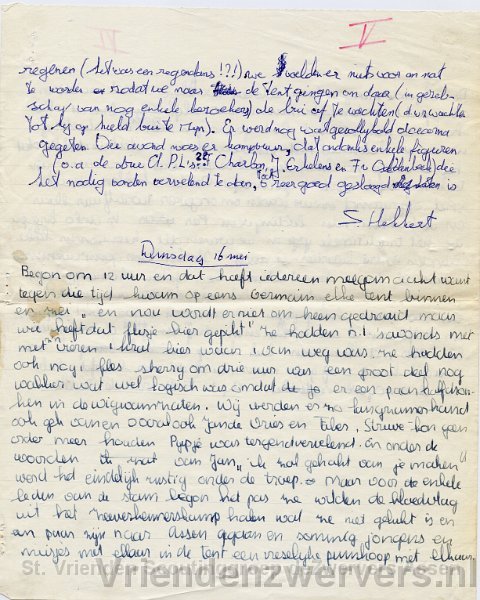 V
regenen (het was een regendans !?!) we voelden er niets voor om nat
te worden zodat we naar de tent gingen om daar (in gezel-
schap van nog enkele bezoekers) de bui af te wachten (d.w.z. wachten
tot hij op hield bui te zijn). Er werd nog wat gevolleybald daarna
gegeten. Die avond was er kampvuur, dat ondanks enkele figuren
(o.a. de drie Cl. P.L's ?? Charbon, J. Enkelens en Fr. Caldenbach) die
het nodig vonden vervelend te doen, toch zeer goed geslaagd is
S. Hekkert
Dinsdag 16 mei
Begon om 12 uur en dat heeft iedereen meegemaakt want
tegen die tijd kwam op eens Germain elke tent binnen
en zei "en nou wordt er niet om heen gedraaid maar
wie heeft dat flesje bier gepikt" ze hadden n.l. s'avonds met
met vieren 1 krat bier waar 1 van weg was. Ze hadden
ook nog 1 fles sherry om drie uur van een groot deel nog
wakker wat wel logisch was omdat de je er een paar
in de wigwam zaten. Wij werden er zo langzamerhand
ook gek van en vooral ook Jan de Vries en Tiles. Struwe kon geen
order meer houden Pypje was tergend vervelend. En onder de
woorden van Jan, "ik zal gehakt van je maken"
werd het eindelijk rustig onder de troep. Maar voor de enkele
leden van de stam begon het pas we wilden de bloedvlag
uit het kamp halen wat me niet gelukt is en
een paar zijn naar Assen gegaan en sommig jongens en
meisjes met elkaar in de tent een vreselijke puinhoop met elkaar.
St. Vrienden Scoutinggroep de Zwervers Assen
Vriendenzwervers.nl